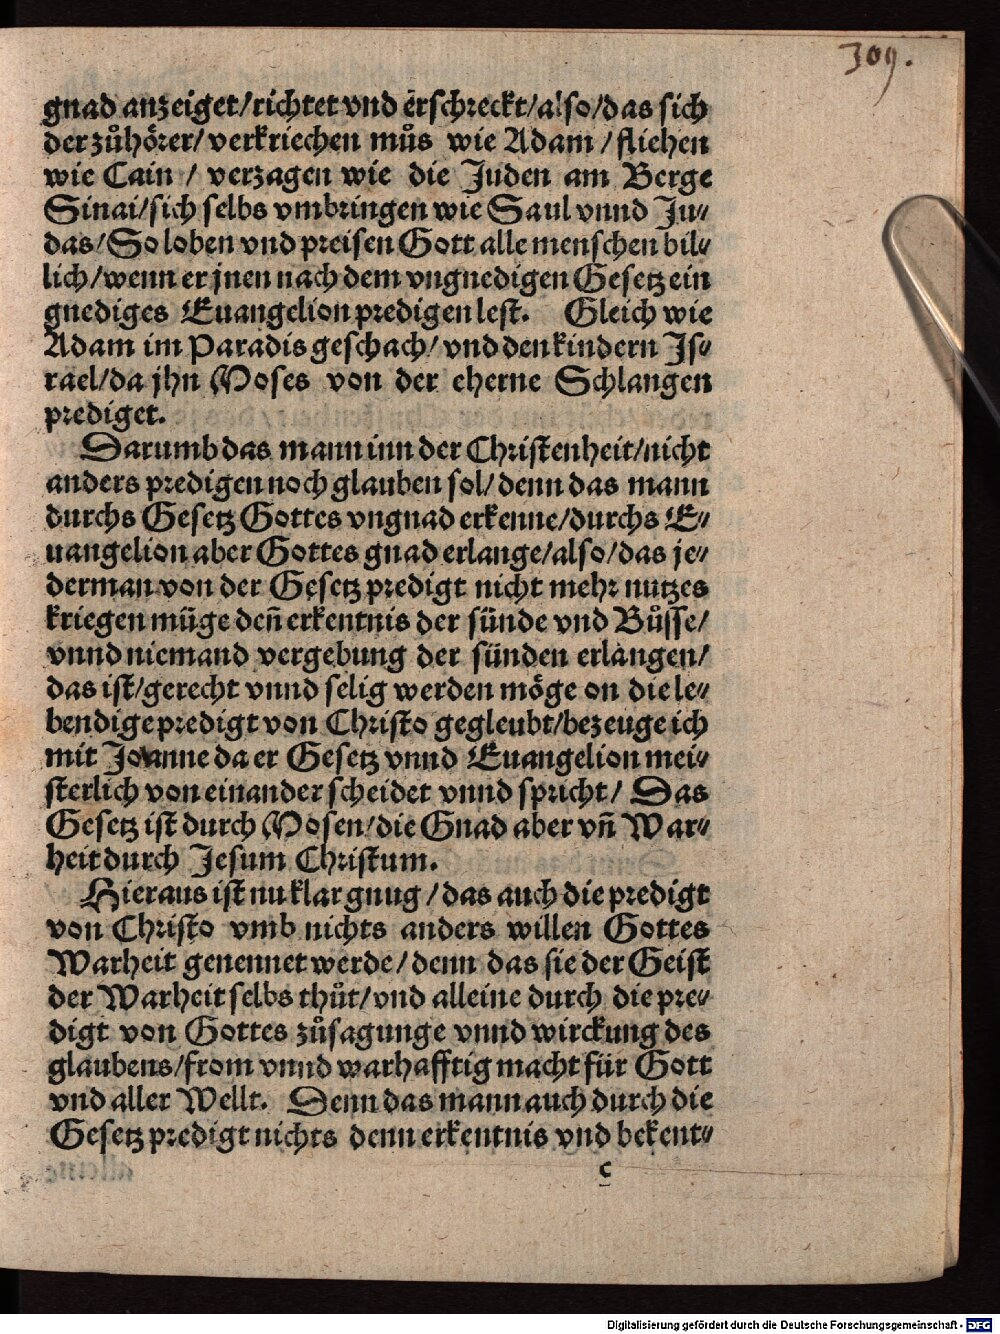 309.
gnad anzeiget/richtet vnd erschreckt/also/das sich
der zůhörer/ verkriechen můs wie Adam / fliehen
wie Cain / verzagen wie die Juden am Berge
Sinai/sich selbs vmbringen wie Saul vnnd Ju⸗
das/So loben vnd preisen Gott alle menschen bil⸗
lich/wenn er jnen nach dem vngnedigen Gesetz ein
gnediges Euangelion predigen lest. Gleich wie
Adam im Paradis geschach/ vnd den kindern Js⸗
rael/da jhn Moses von der eherne Schlangen
prediget.
Darumb das mann inn der Christenheit/nicht
anders predigen noch glauben sol/ denn das mann
durchs Gesetz Gottes vngnad erkenne/durchs E⸗
uangelion aber Gottes gnad erlange/also/das je⸗
derman von der Gesetz predigt nicht mehr nutzes
kriegen müge deñ erkentnis der sünde vnd Bůsse/
vnnd niemand vergebung der sünden erlangen/
das ist/gerecht vnnd selig werden möge on die le⸗
bendige predigt von Christo gegleubt/bezeuge ich
mit Joanne da er Gesetz vnnd Euangelion mei⸗
sterlich von einander scheidet vnnd spricht/ Das
Gesetz ist durch Mosen/die Gnad aber vñ War⸗
heit durch Jesum Christum.
Hieraus ist nu klar gnug /das auch die predigt
von Christo vmb nichts anders willen Gottes
Warheit genennet werde/denn das sie der Geist
der Warheit selbs thůt/vnd alleine durch die pre⸗
digt von Gottes zůsagunge vnnd wirckung des
glaubens/from vnnd warhafftig macht für Gott
vnd aller Wellt. Denn das mann auch durch die
Gesetz predigt nichts denn erkentnis vnd bekent⸗
c
Digitalisierung gefördert durch die Deutsche Forschungsgemeinschaft - DFG